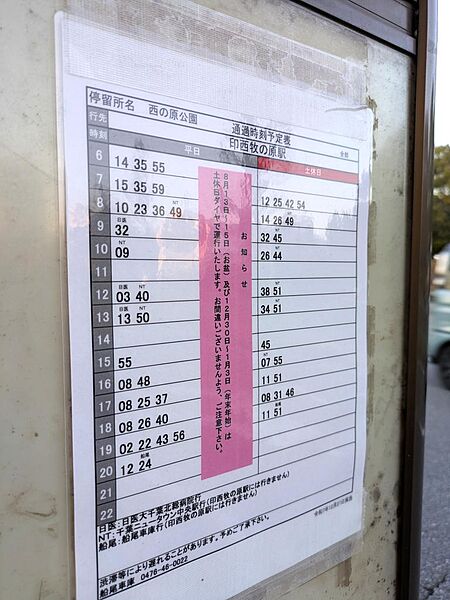 停留所名 西の原公園
通過時刻予定表
行先 印西牧の原駅 全部
時刻 平日 土休日
6 14 35 55
7 15 35 59 12 25 42 54
NT NT
8 10 23 36 49 14 26 49
日医 NT
9 32 32 45
NT NT
10 09 26 44
11
日医 NT NT
12 03 40 38 51
日医 NT
13 13 50 34 51
14
15 55 45
NT
16 08 48 07 55
17 08 25 37 11 51
18 08 26 40 08 31 46
船尾
19 02 22 43 56 11 51
船尾
20 12 24
21
22
お知らせ
8月13日～15日(お盆)及び12月30日～1月3日(年末年始)は
土休日ダイヤで運行いたします。お間違いございませんよう、ご注意下さい。
日医:日医大千葉北総病院行
NT:千葉ニュータウン中央駅行(印西牧の原駅には行きません)
船尾:船尾車庫行(印西牧の原駅には行きません)
渋滞等により遅れることがあります。予めご了承下さい。
船尾車庫 0476-46-0022